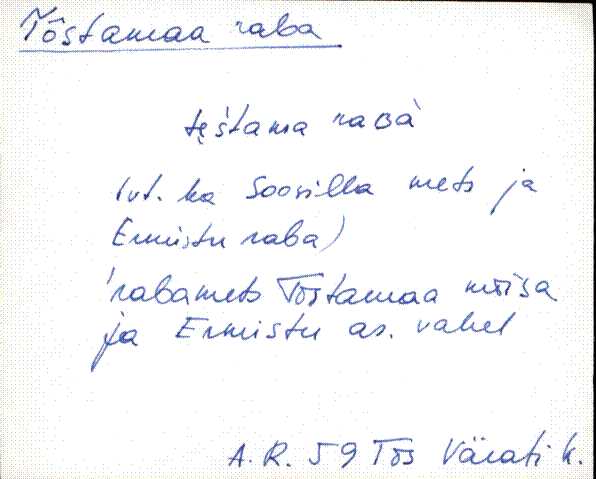 Tõstamaa raba
tę̀štama raʙà
(vt. ka Soosilla mets ja
Ermistu raba)
'rabamets Tõstamaa mõisa
ja Ermistu as. vahel
A. R. 59 Tõs Värati k.